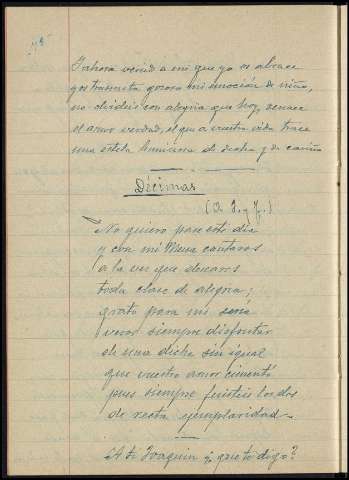 Y ahora venid a mi que yo os abrace
y os trasmita gozosa mi emoción de niña,
no olvideis con alegria que hoy, renace
el amor verdad, el que a vuestra vida trace
una estela luminosa de dicha y de cariño
Décimas
(A J. y J.)
No quiero pase este dia
y con mi Musa cantaros
a la vez que desearos
toda clase de alegria;
grato para mi seria
veros siempre disfrutar
de una dicha sin igual
que vuestro amor cimentó
pues siempre fuisteis los dos
de recta ejemplaridad
A ti Joaquin ¿que te digo?